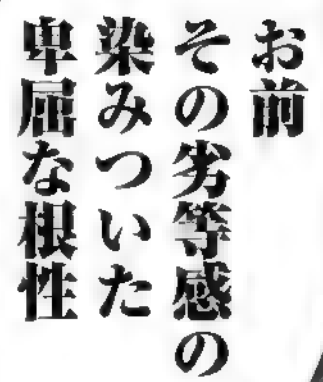 お前
その劣等感の
染みついた
卑屈な根性